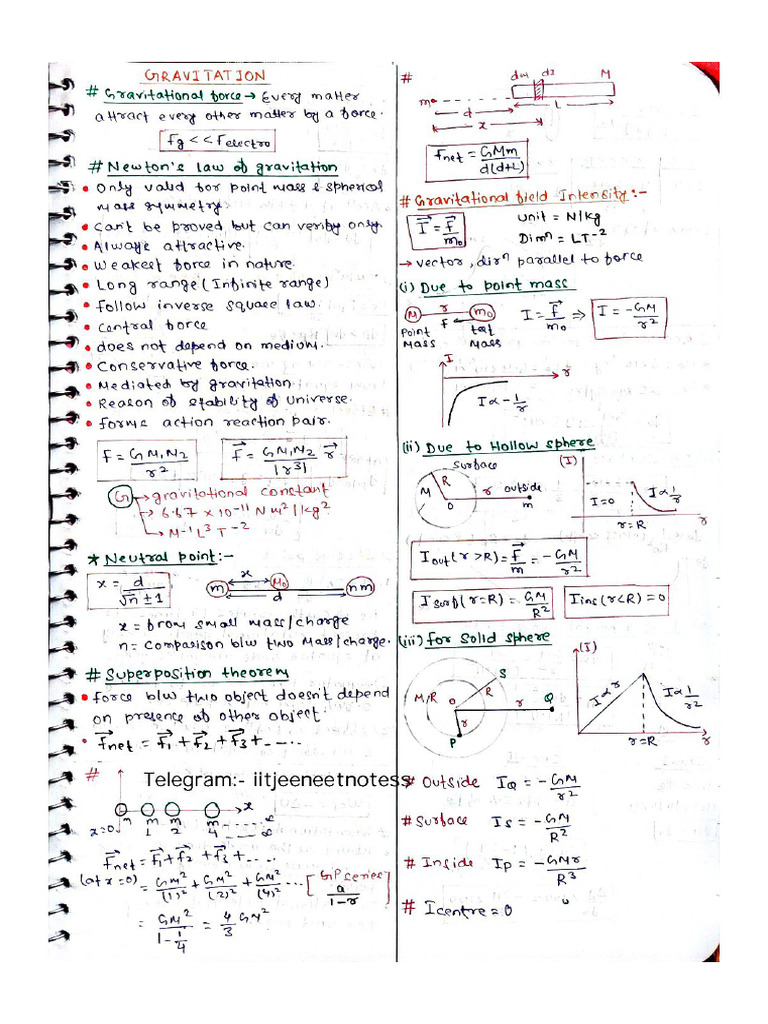 GRAVITATION
# Gravitational force → Every matter
attract every other matter by a force.
Fg << Felectro
# Newton's law of gravitation
• Only valid for point mass & spherical
mass symmetry.
• Can't be proved but can verify only.
• Always attractive.
• Weakest force in nature.
• Long range (Infinite range)
• follow inverse square law.
• Central force
• does not depend on medium.
• Conservative force.
• Mediated by gravitation.
• Reason of stability of Universe.
• forms action reaction pair.
F = GM₁M₂/r² F⃗ = GM₁M₂/|r³| r⃗
G → gravitational constant
→ 6.67 × 10⁻¹¹ Nm²/kg²
→ M⁻¹L³T⁻²
* Neutral point:-
x = d/(√n ± 1)
x
m M₀ nm
d
x = from small mass/charge
n = comparison b/w two Mass/charge.
# Superposition theorem
• force b/w two object doesn't depend
on presence of other object.
• F⃗net = F⃗₁ + F⃗₂ + F⃗₃ + .....
#
Telegram:- iitjeeneetnotess
x
m m m m
x=0 1 2 4 ∞
F⃗net = F⃗₁ + F⃗₂ + F⃗₃ + .....
(at r=0) = GM²/(1)² + GM²/(2)² + GM²/(4)² ... [GP series a/(1-r)
= GM²/(1 - 1/4) = 4/3 GM²
#
dM dx M
m
d L
x
Fnet = GMm/d(d+L)
# Gravitational field Intensity:-
I⃗ = F⃗/m₀ Unit = N/kg
Dimⁿ = LT⁻²
→ vector, dirⁿ parallel to force
(i) Due to point mass
M r m₀ I = F⃗/m₀ ⇒ I = -GM/r²
F
Point Mass test Mass
I
r
I ∝ -1/r
(ii) Due to Hollow sphere
Surface (I)
R
M r outside
O m
I=0 I ∝ 1/r
r=R r
Iout (r>R) = F⃗/m = -GM/r²
Isurf (r=R) = GM/R² Iins (r<R) = 0
(iii) for solid sphere
(I)
S
M,R O R
r Q
r
P
I ∝ r I ∝ 1/r²
r=R r
# Outside IQ = -GM/r²
# Surface IS = -GM/R²
# Inside IP = -GMr/R³
# Icentre = 0